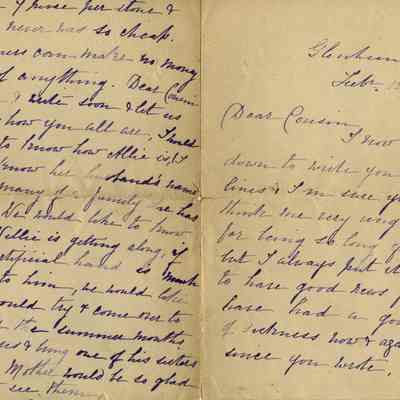 7 horse per stone &
never was so cheap.
can make no money
of anything. Dear Cousin
write soon & let us
how you all are, I would
to know how Allie is, I
know her husband's name
many of a family she has
We would like to know
Willie is getting along, if
artificial hand is much
to him, we would like
would try & come over to
the summer months
us & bring one of his sisters
Mother would be so glad
see them
Febr.
Dear Cousin
I now
down to write you
lines & I'm sure you
think me very
for being so long
but I always put it
to have good news
have had a good
of sickness now &
since you wrote,